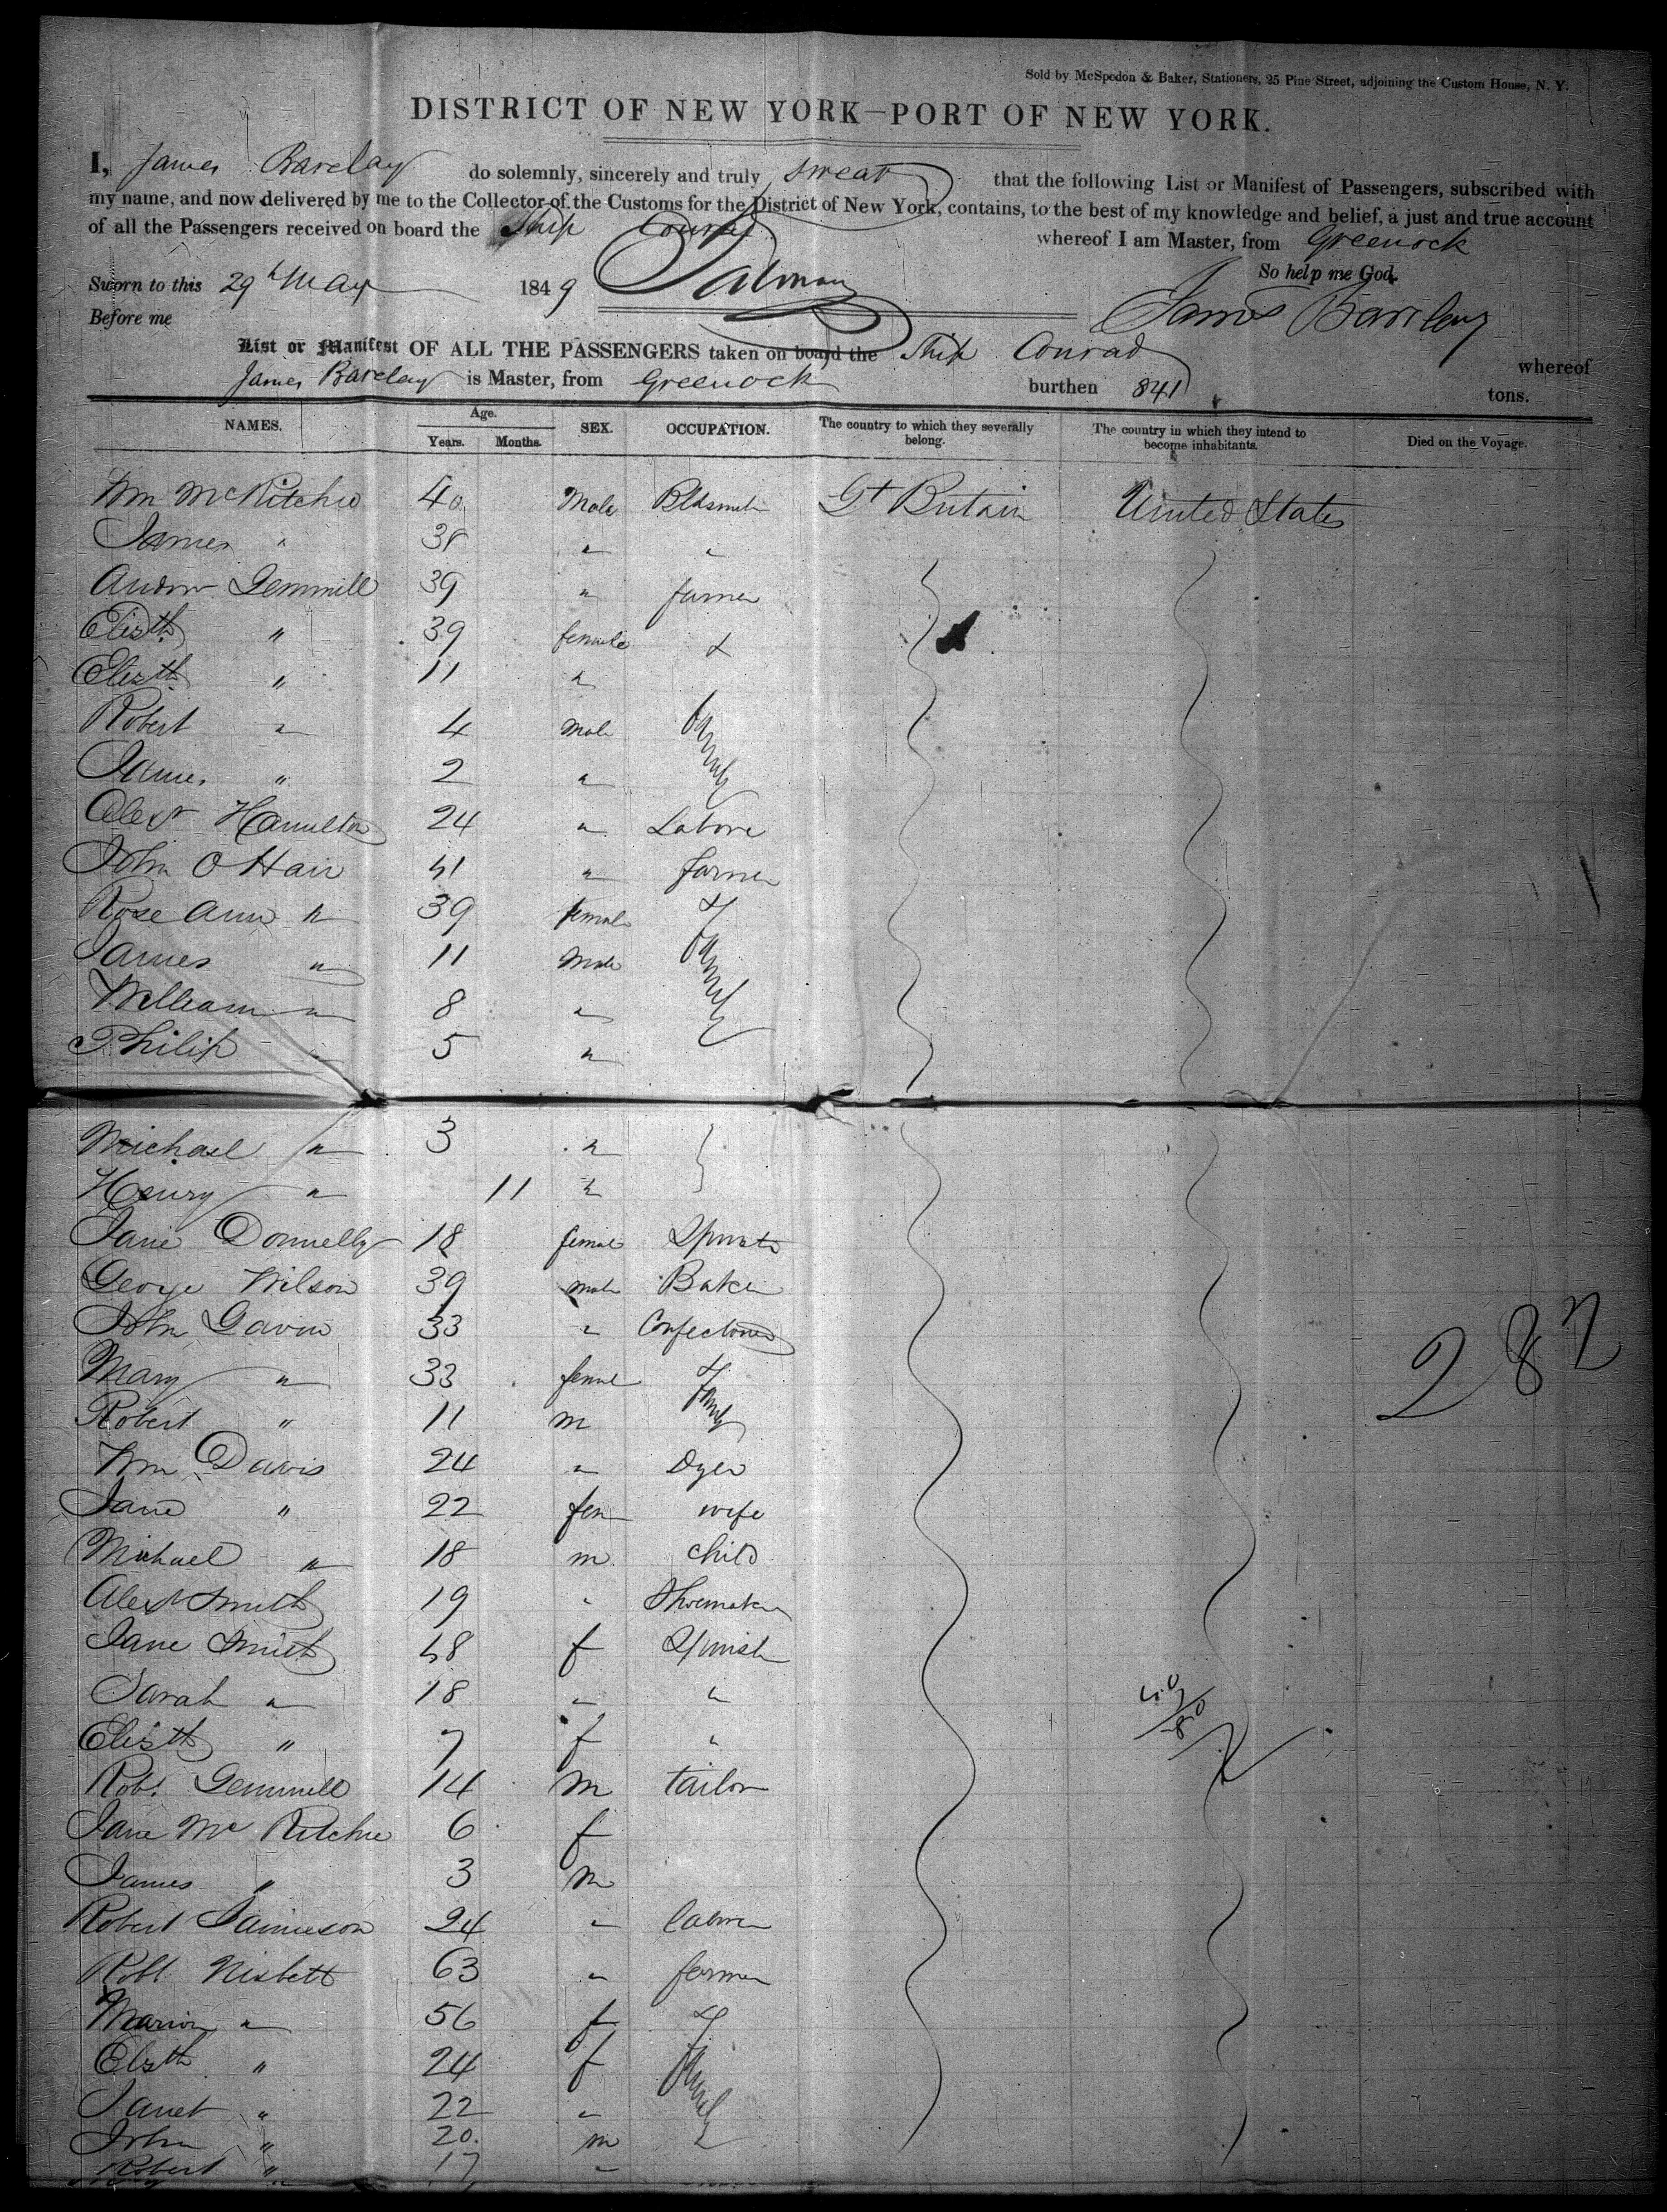 Sold by McSpedon & Baker, Stationers, 25 Pine Street, adjoining the Custom House, N. Y.
DISTRICT OF NEW YORK—PORT OF NEW YORK.
I, James Barclay do solemnly, sincerely and truly swear that the following List or Manifest of Passengers, subscribed with
my name, and now delivered by me to the Collector of the Customs for the District of New York, contains, to the best of my knowledge and belief, a just and true account
of all the Passengers received on board the Ship Conrad whereof I am Master, from Greenock
So help me God.
Sworn to this 29th May 1849 James Barclay
Before me
List or Manifest OF ALL THE PASSENGERS taken on board the Ship Conrad whereof
James Barclay is Master, from Greenock burthen 841 tons.
NAMES. Age. Years. Months. SEX. OCCUPATION. The country to which they severally belong. The country in which they intend to become inhabitants. Died on the Voyage.
Wm McRitchie 40 Male Blksmith Gt Britain United States
James " 38 " "
Andrw Gemmill 39 " farmer
Elizth " 39 female &
Elizth " 11 "
Robert " 4 Male family
James " 2 "
Alexr Hamilton 24 " Labore
John O Hair 41 " farmer
Rose Ann " 39 female &
James " 11 Male family
William " 8 "
Philip " 5 "
Michael " 3 "
Henry " 11 "
Jane Donnelly 18 female
George Wilson 39 male Baker
John Gavin 33 " Confectioner
Mary " 33 female &
Robert " 11 m family
Wm Davis 24 " Dyer
Jane " 22 fem wife
Michael " 18 m child
Alexr Smith 19 " Shoemaker
Jane Smith 48 f
Sarah " 18 " "
Elizth " 7 f "
Robt Gemmell 14 m tailor
Jane Mc Ritchie 6 f
James " 3 m
Robert Jamieson 24 " labore
Robt Nisbett 63 " farmer
Marion " 56 f &
Elizth " 24 f family
Janet " 22 "
John " 20 m
Robert " 17 "
282